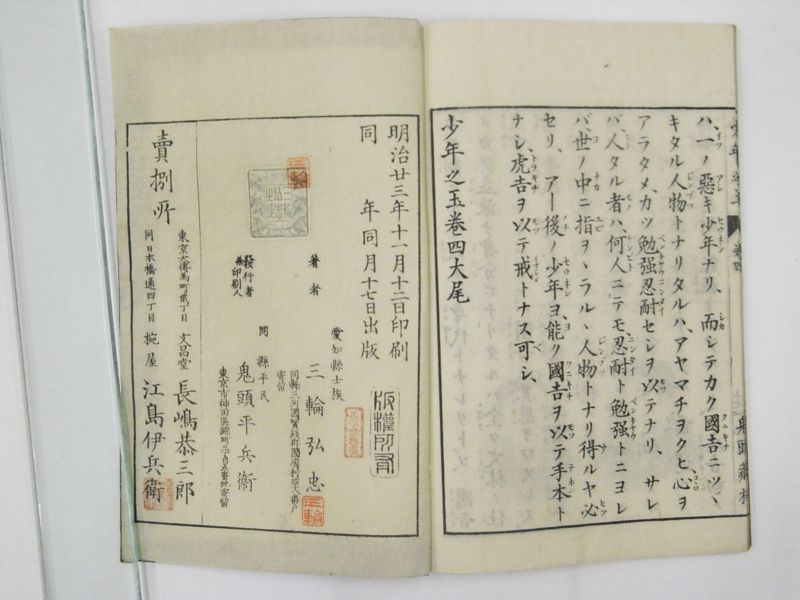 ハ、一ノ惡キ少年ナリ、而シテカク國吉ニツヾ
キタル人物トナリタルハ、アヤマチヲクヒ、心ヲ
アラタメ、カツ勉强忍耐セシヲ以テナリ、サレ
バ、人タル者ハ、何人ニテモ、忍耐ト勉强トニヨレ
バ、世ノ中ニ指ヲヽラルヽ人物トナリ得ルヤ必
セリ、アー後ノ少年ヨ、能ク國吉ヲ以テ手本ト
ナシ、虎吉ヲ以テ戒トナス可シ、
少年之玉卷四大尾
明治廿三年十一月十二日印刷
同年同月十七日出版
版權所有
著者
愛知縣士族
三輪弘忠
三輪
發行者
兼印刷人
同縣平民
鬼頭平兵衞
賣捌所
東京大傳馬町貳丁目
文昌堂
長嶋恭三郎
同日本橋通四丁目
椀屋
江島伊兵衞